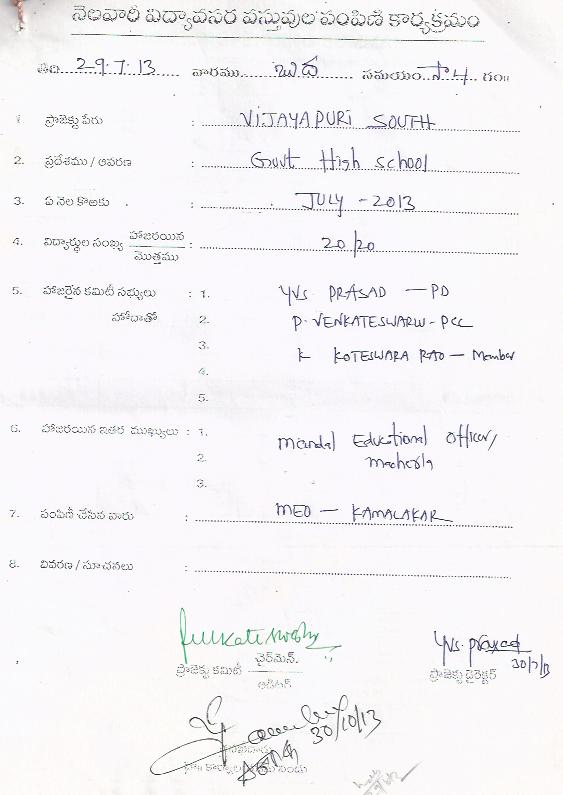 నెలవారీ విద్యావసర వస్తువుల పంపిణి కార్యక్రమం
తేది 29.7.13 వారము బుధ సమయం సా 4 గం॥
1. ప్రాజెక్టు పేరు : VIJAYAPURI SOUTH
2. ప్రదేశము / ఆవరణ : Govt High School
3. ఏ నెల కొఱకు : JULY - 2013
4. విద్యార్థుల సంఖ్య హాజరయిన / మొత్తము : 20/20
5. హాజరైన కమిటీ సభ్యులు : 1. YVS PRASAD — PD
హోదాతో 2. P. VENKATESWARLU - PCC
3. K KOTESWARA RAO — Member
4.
5.
6. హాజరయిన ఇతర ముఖ్యులు : 1. Mandal Educational Officer,
2. Macherla
3.
7. పంపిణీ చేసిన వారు : MEO — KAMALAKAR
8. వివరణ / సూచనలు :
ప్రాజెక్టు కమిటీ ఛైర్‌మెన్.
ఆడిటర్
YVS. Prasad
30/7/13
ప్రాజెక్టు డైరెక్టర్
30/10/13